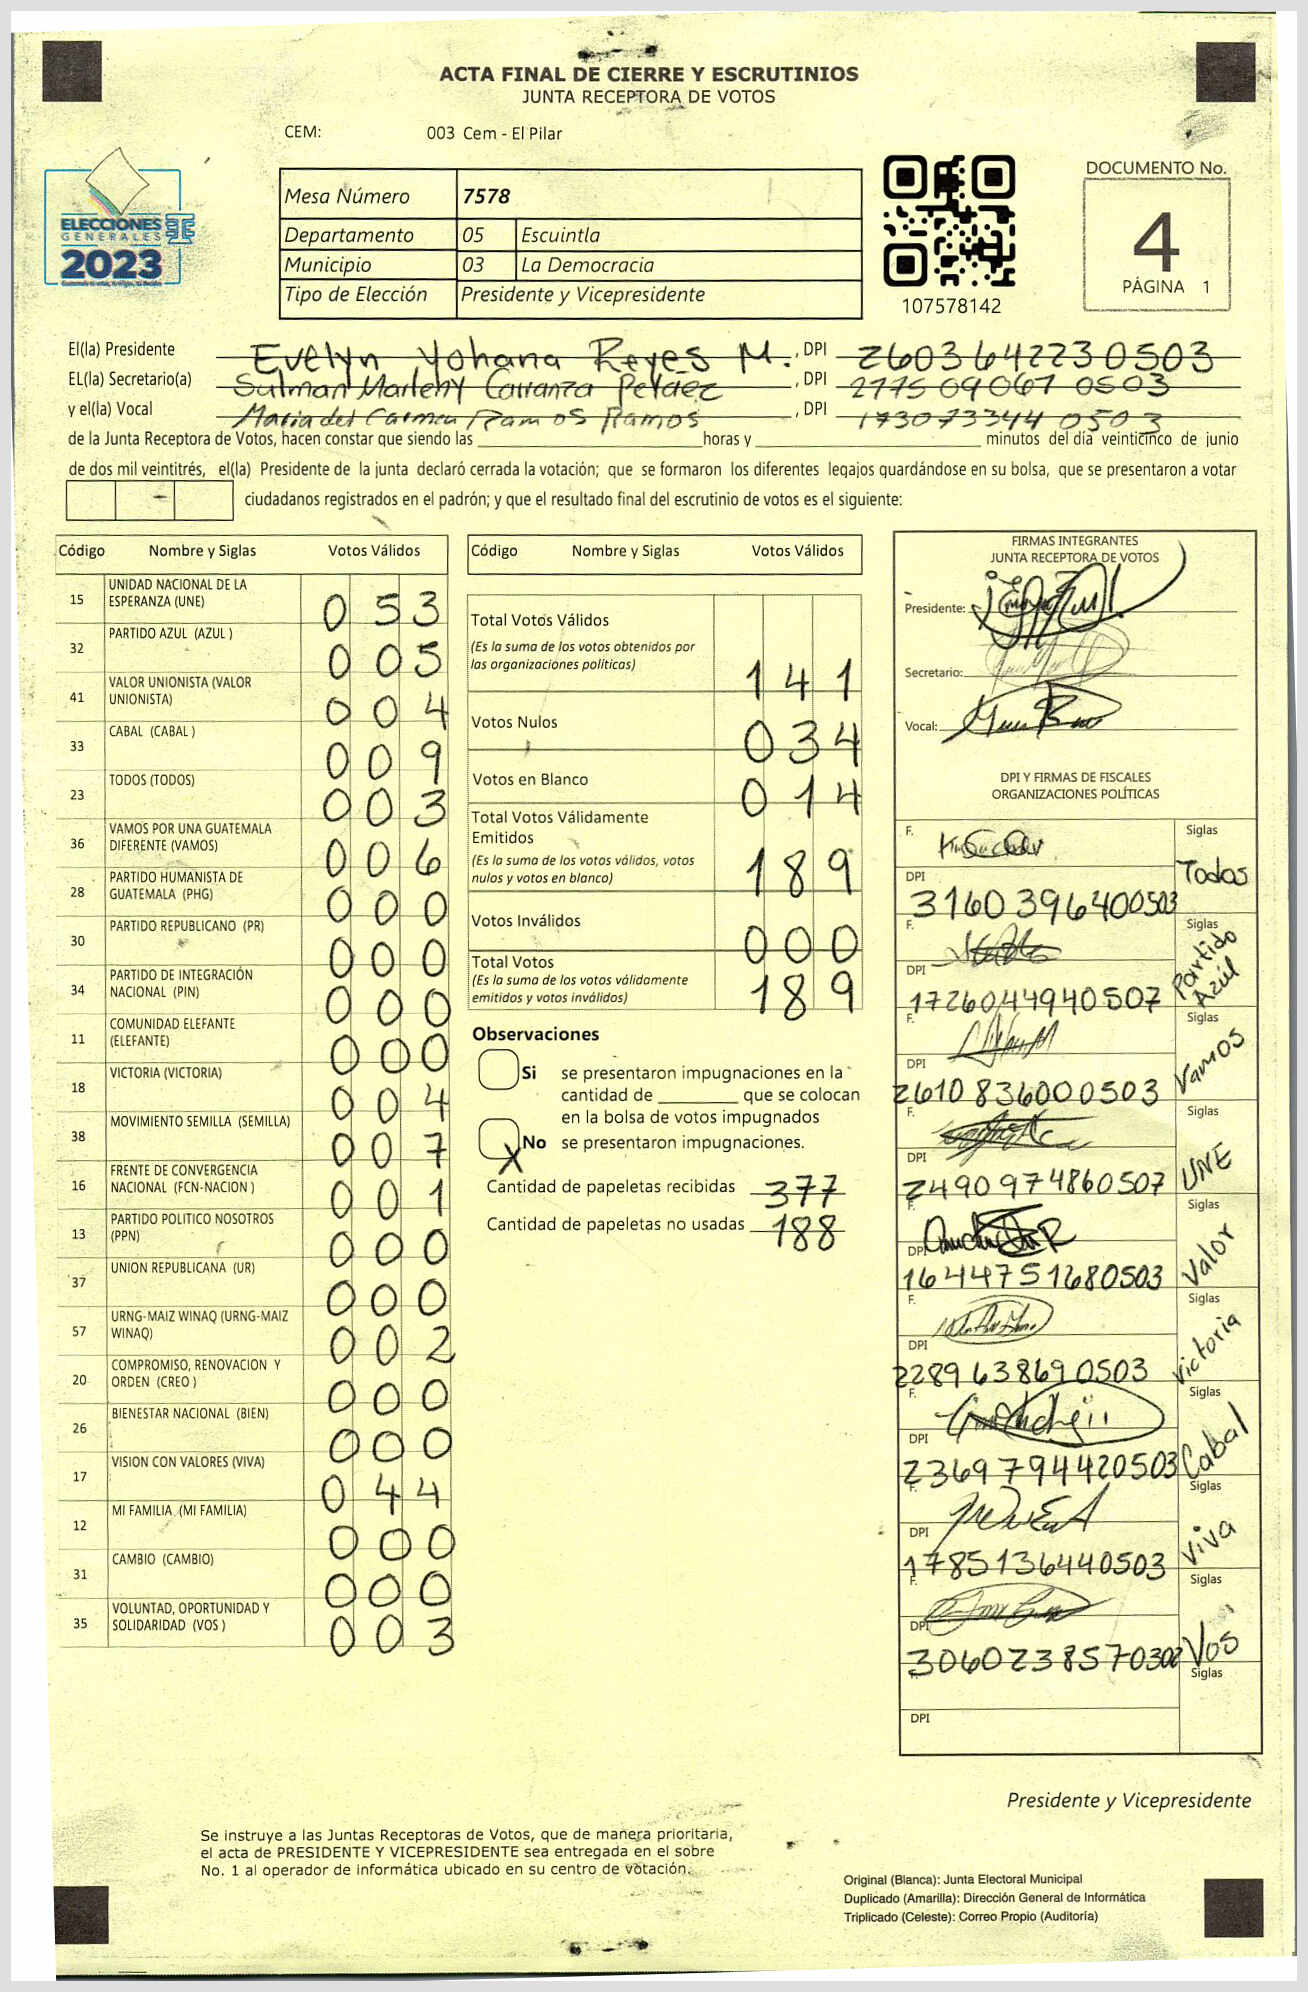 ACTA FINAL DE CIERRE Y ESCRUTINIOS
JUNTA RECEPTORA DE VOTOS
CEM: 003 Cem - El Pilar
DOCUMENTO No.
4
PÁGINA 1
ELECCIONES
GENERALES
2023
Mesa Número 7578
Departamento 05 Escuintla
Municipio 03 La Democracia
Tipo de Elección Presidente y Vicepresidente
107578142
El(la) Presidente Evelyn Yohana Reyes M. , DPI 2603642230503
EL(la) Secretario(a) Sulman Marleny Carranza Peláez , DPI 2775090670503
y el(la) Vocal Maria del Carmen Ramos Ramos , DPI 1730733440503
de la Junta Receptora de Votos, hacen constar que siendo las horas y minutos del día veinticinco de junio
de dos mil veintitrés, el(la) Presidente de la junta declaró cerrada la votación; que se formaron los diferentes legajos guardándose en su bolsa, que se presentaron a votar
ciudadanos registrados en el padrón; y que el resultado final del escrutinio de votos es el siguiente:
Código Nombre y Siglas Votos Válidos
15 UNIDAD NACIONAL DE LA ESPERANZA (UNE) 053
32 PARTIDO AZUL (AZUL ) 005
41 VALOR UNIONISTA (VALOR UNIONISTA) 004
33 CABAL (CABAL ) 009
23 TODOS (TODOS) 003
36 VAMOS POR UNA GUATEMALA DIFERENTE (VAMOS) 006
28 PARTIDO HUMANISTA DE GUATEMALA (PHG) 000
30 PARTIDO REPUBLICANO (PR) 000
34 PARTIDO DE INTEGRACIÓN NACIONAL (PIN) 000
11 COMUNIDAD ELEFANTE (ELEFANTE) 000
18 VICTORIA (VICTORIA) 004
38 MOVIMIENTO SEMILLA (SEMILLA) 007
16 FRENTE DE CONVERGENCIA NACIONAL (FCN-NACION ) 001
13 PARTIDO POLITICO NOSOTROS (PPN) 000
37 UNION REPUBLICANA (UR) 000
57 URNG-MAIZ WINAQ (URNG-MAIZ WINAQ) 002
20 COMPROMISO, RENOVACION Y ORDEN (CREO ) 000
26 BIENESTAR NACIONAL (BIEN) 000
17 VISION CON VALORES (VIVA) 044
12 MI FAMILIA (MI FAMILIA) 000
31 CAMBIO (CAMBIO) 000
35 VOLUNTAD, OPORTUNIDAD Y SOLIDARIDAD (VOS ) 003
Código Nombre y Siglas Votos Válidos
Total Votos Válidos
(Es la suma de los votos obtenidos por
las organizaciones políticas) 141
Votos Nulos 034
Votos en Blanco 014
Total Votos Válidamente
Emitidos
(Es la suma de los votos válidos, votos
nulos y votos en blanco) 189
Votos Inválidos 000
Total Votos
(Es la suma de los votos válidamente
emitidos y votos inválidos) 189
Observaciones
Si se presentaron impugnaciones en la
cantidad de que se colocan
en la bolsa de votos impugnados
X No se presentaron impugnaciones.
Cantidad de papeletas recibidas 377
Cantidad de papeletas no usadas 188
FIRMAS INTEGRANTES
JUNTA RECEPTORA DE VOTOS
Presidente:
Secretario:
Vocal:
DPI Y FIRMAS DE FISCALES
ORGANIZACIONES POLÍTICAS
F. Siglas
DPI Todos
3160396400503
F. Siglas
DPI Partido Azul
1726044940507
F. Siglas
DPI Vamos
2610836000503
F. Siglas
DPI UNE
2490974860507
F. Siglas
DPI Valor
1644751680503
F. Siglas
DPI Victoria
2289638690503
F. Siglas
DPI Cabal
2369794420503
F. Siglas
DPI Viva
1785136440503
F. Siglas
DPI Vos
3060238570302
F. Siglas
DPI
Presidente y Vicepresidente
Se instruye a las Juntas Receptoras de Votos, que de manera prioritaria,
el acta de PRESIDENTE Y VICEPRESIDENTE sea entregada en el sobre
No. 1 al operador de informática ubicado en su centro de votación.
Original (Blanca): Junta Electoral Municipal
Duplicado (Amarilla): Dirección General de Informática
Triplicado (Celeste): Correo Propio (Auditoría)